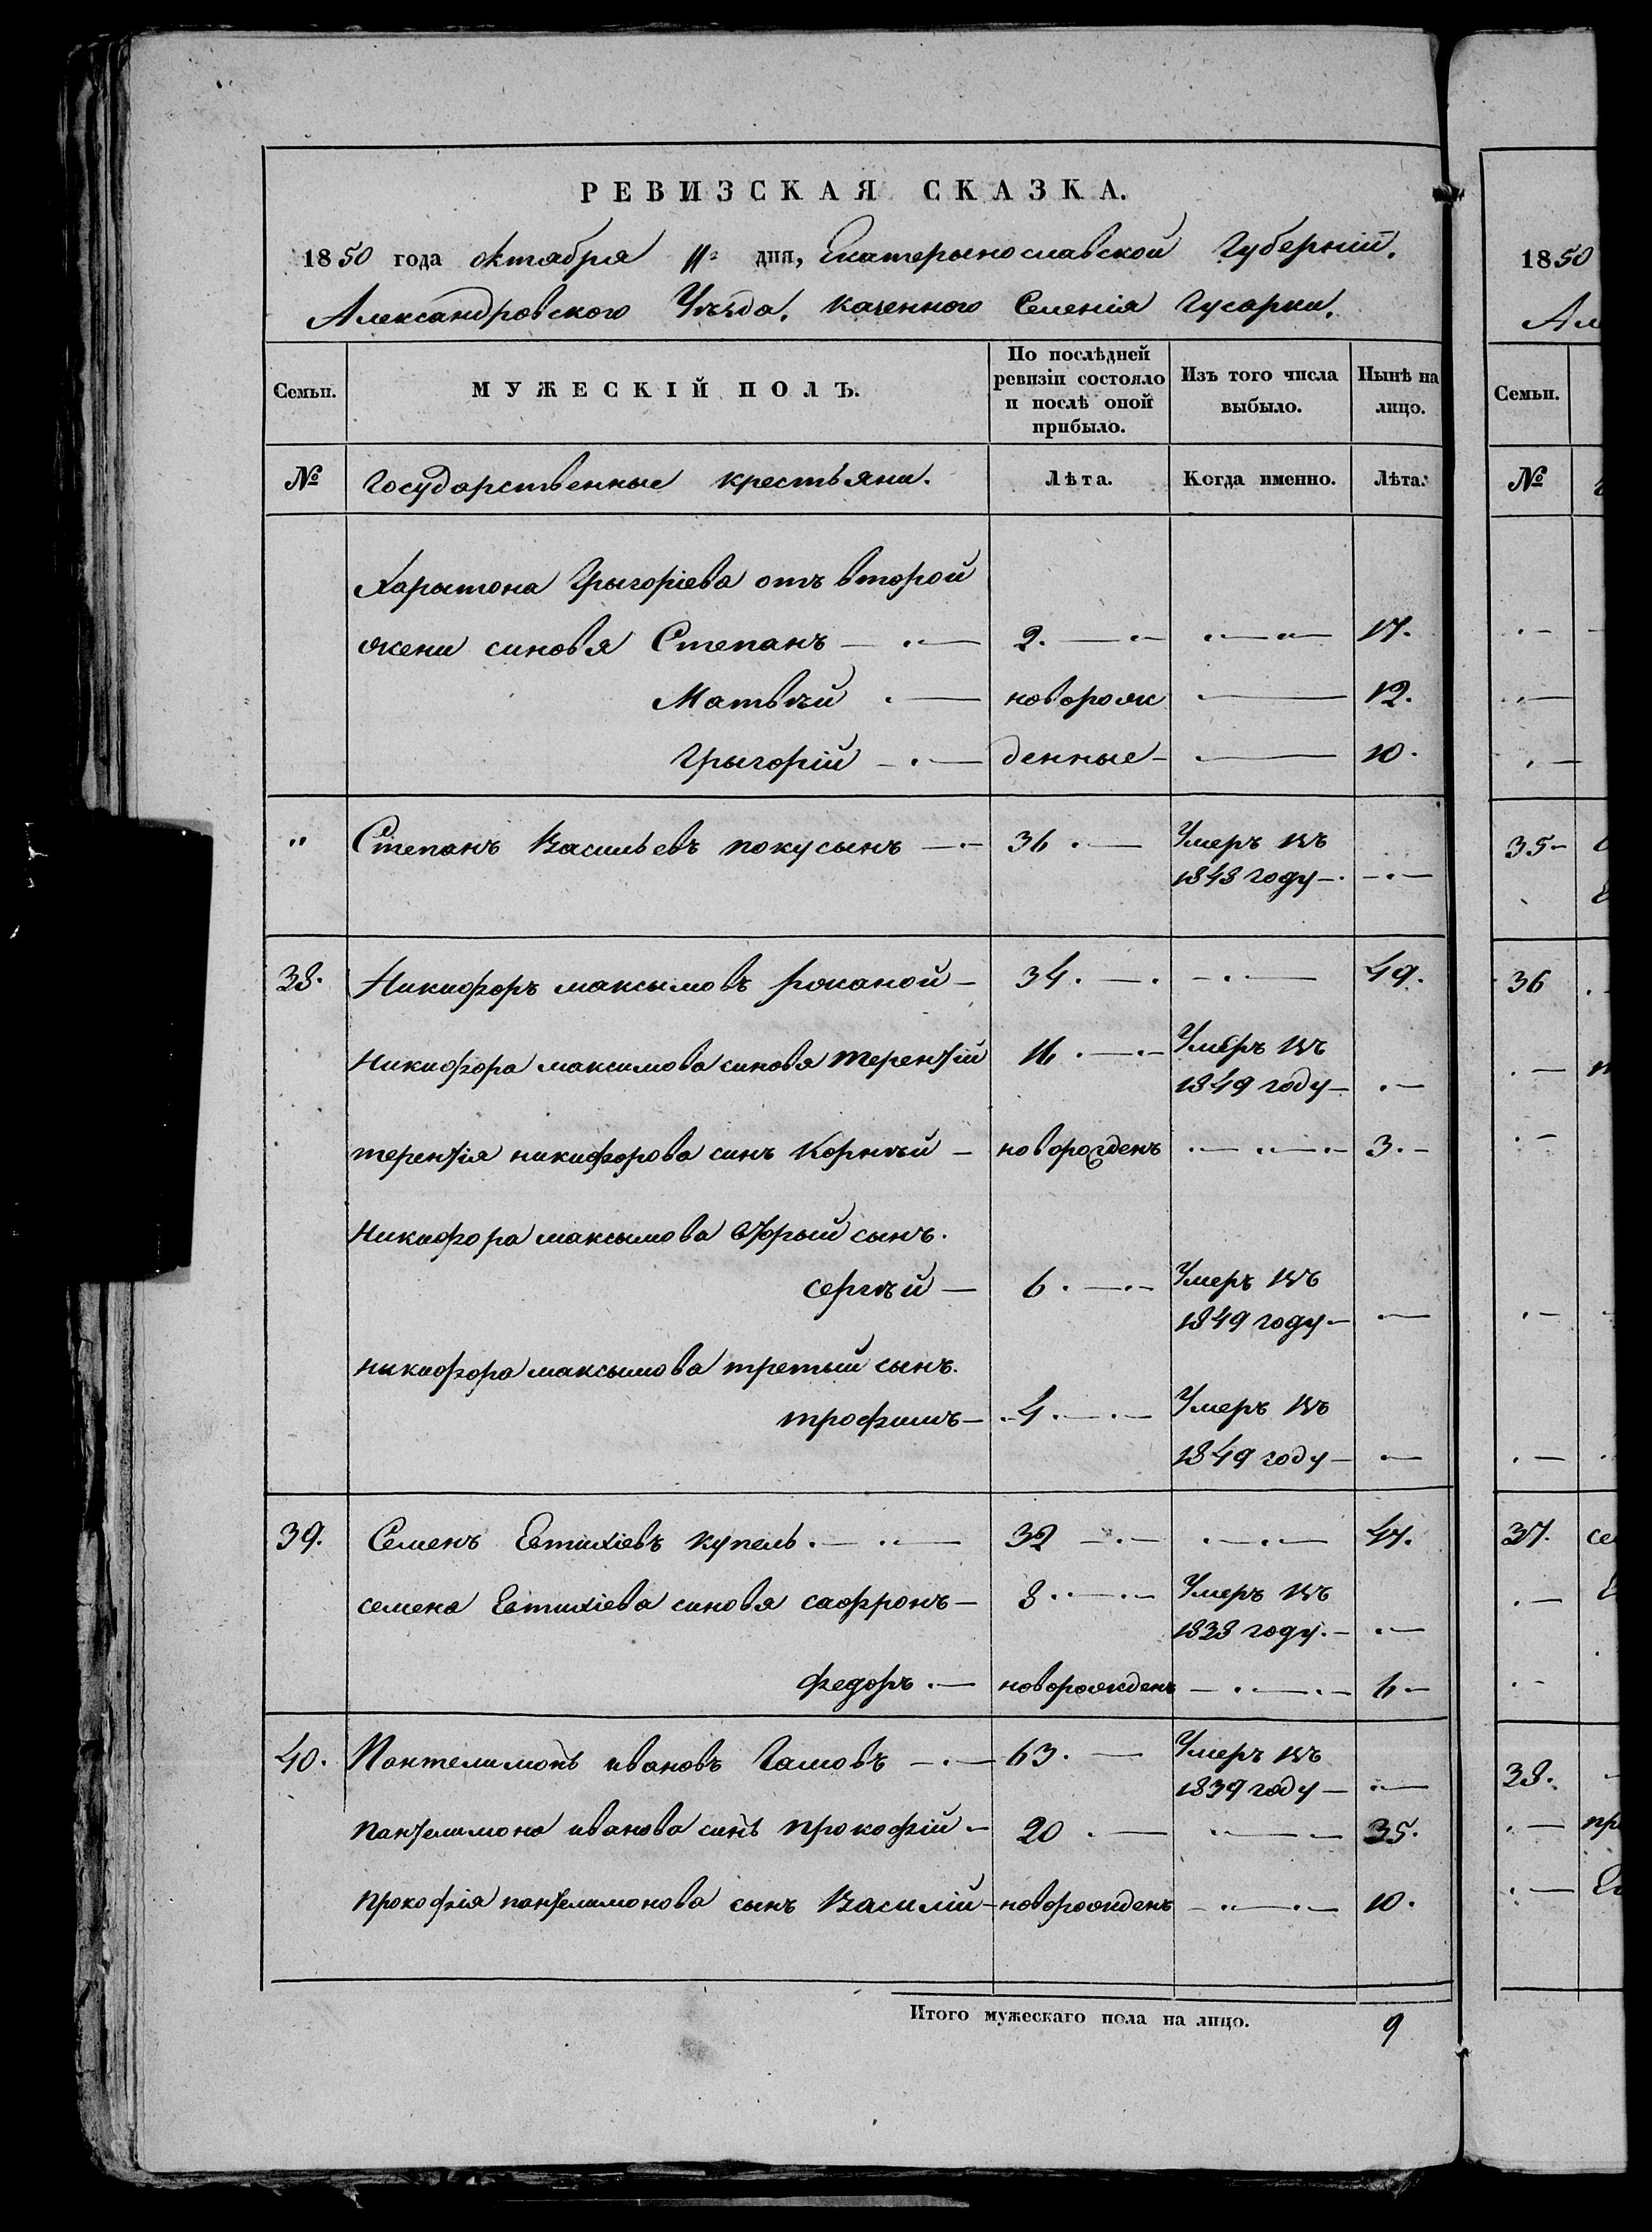 РЕВИЗСКАЯ СКАЗКА.
1850 года октября 11 дня, Екатерынославской Губерніи,
Александровского Уѣзда, казенного Селенія Гусарки,
Семьи. МУЖЕСКІЙ ПОЛЪ. По послѣдней ревизіи состояло и послѣ оной прибыло. Изъ того числа выбыло. Нынѣ на лицо.
№ Государственные крестьяни. Лѣта. Когда именно. Лѣта.
Харытона Грыгоріева отъ второй
жени синовя Степанъ 2. 17.
Матвѣй новорож 12.
Грыгорій денные 10.
" Степанъ Васильевъ покусынъ 36. Умеръ въ
1848 году
38. Никифоръ максымовъ 34. 49.
Никифора максимова синовя терентій 16. Умеръ въ
1849 году
терентія никифорова синъ Корнѣй новорожденъ 3.
Никифора максымова вторый сынъ.
сергѣй 6. Умеръ въ
1849 году
никифора максымова третый сынъ.
трофимъ 4. Умеръ въ
1849 году
39. Семенъ Евтихіевъ купель. 32 47.
семена Евтихіева синовя сафронъ 8. Умеръ въ
1838 году.
федоръ. новорожденъ 6
40. Пантелимонъ ивановъ Гамовъ 63. Умеръ въ
1839 году
пантелимона иванова синъ прокофій 20 35.
прокофія пантелимонова сынъ Василій новорожденъ 10.
Итого мужескаго пола на лицо. 9
1850
Ал
Семьи.
№
35
36
37. се
38.
пр